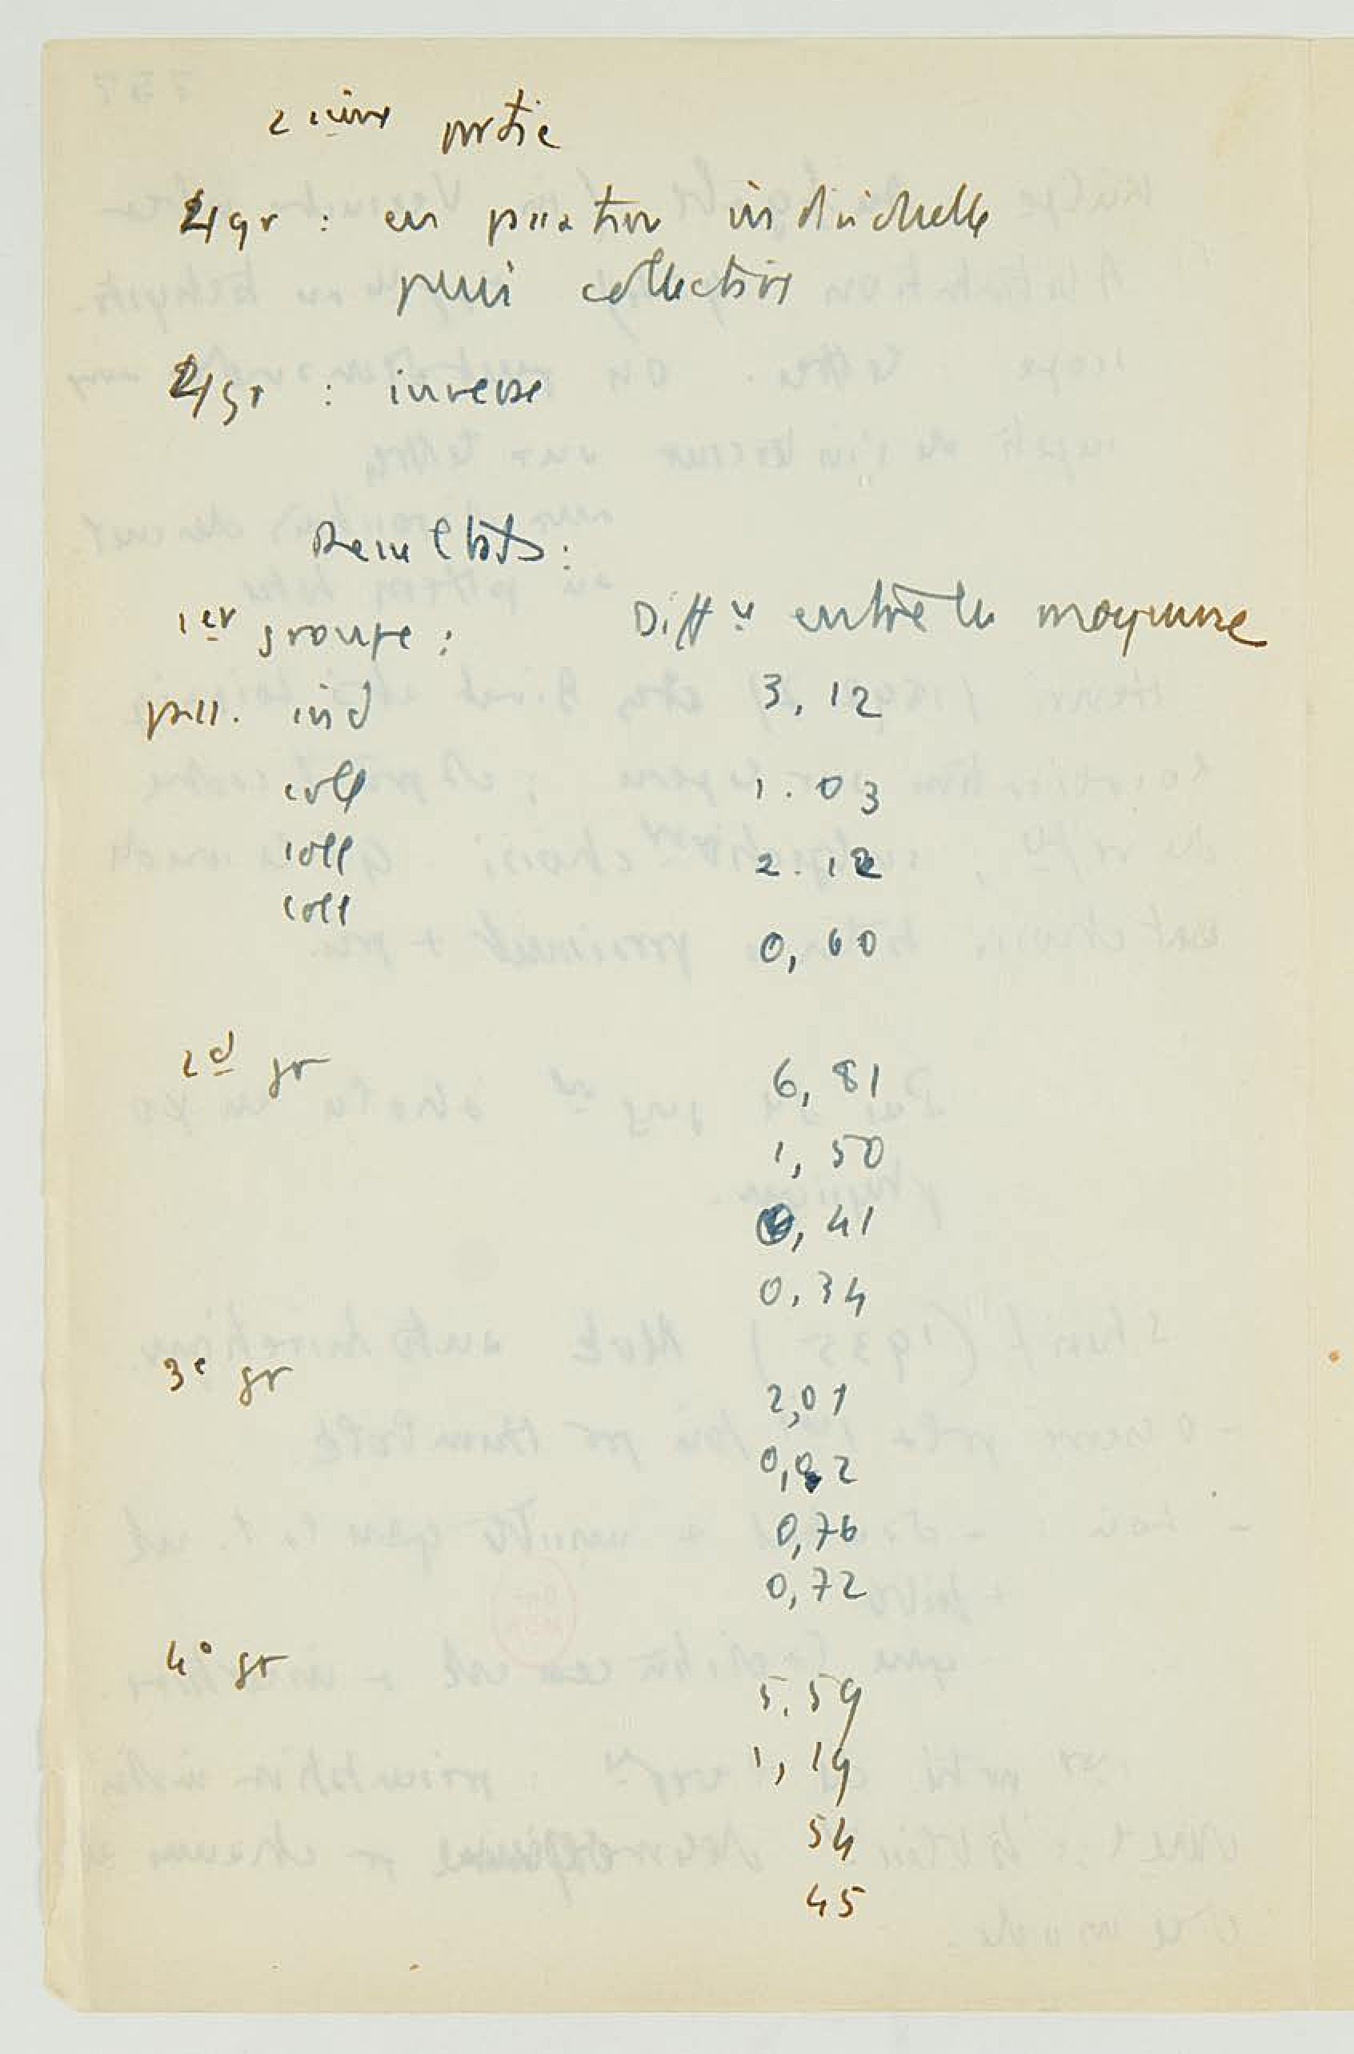 2ième partie
4 gr : en situation individuelle
puis collective
4 gr : inverse
Resultats :
1er groupe :
Diff ce entre les moyennes
sit. ind 3,12
coll 1.03
coll 2.12
coll 0,60
2d gr
6,81
1,50
,41
0,34
3e gr
2,01
0,76
0,72
4e gr
5.59
1,19
54
45